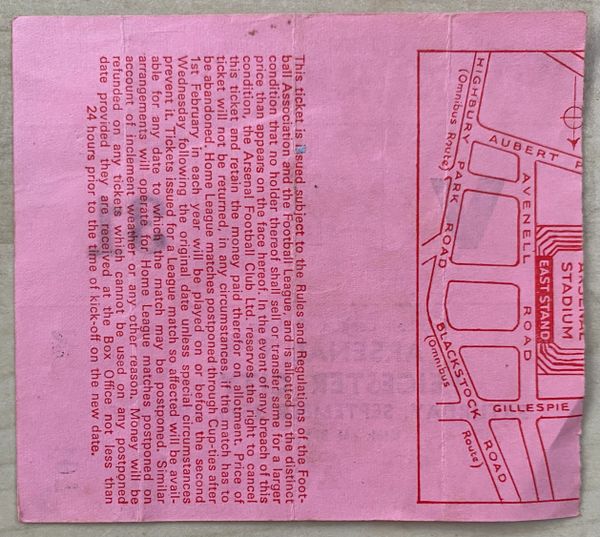 This ticket is issued subject to the Rules and Regulations of the Foot-
ball Association and the Football League, and is allotted on the distinct
condition that no holder thereof shall sell or transfer same for a larger
price than appears on the face hereof. In the event of any breach of this
condition, the Arsenal Football Club Ltd. reserves the right to cancel
this ticket and retain the money paid therefor on allotment. Price of
ticket will not be returned, in any circumstances, if a match has to
be abandoned. Home League matches postponed through Cup-ties after
1st February in each year will be played on or before the second
Wednesday following the original date unless special circumstances
prevent it. Tickets issued for a League match so affected will be avail-
able for any date to which the match may be postponed. Similar
arrangements will operate for Home League matches postponed on
account of inclement weather or any other reason. Money will be
refunded on any tickets which cannot be used on any postponed
date provided they are received at the Box Office not less than
24 hours prior to the time of kick-off on the new date.
HIGHBURY PARK ROAD
(Omnibus Route)
AUBERT
AVENELL ROAD
ARSENAL
STADIUM
EAST STAND
BLACKSTOCK ROAD
(Omnibus Route)
GILLESPIE
ARSENAL
LEICESTER
SEPTEMBER